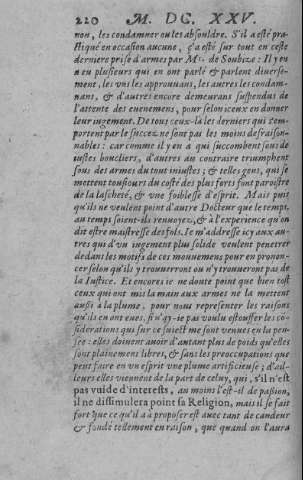 220 M. DC. XXV.
non, les condamner ou les absouldre. S'il a esté pra-
ctiqué en occasion aucune, ç'a esté sur tout en ceste
derniere prise d'armes par Mr. de Soubize : Il y en
a eu plusieurs qui en ont parlé & parlent diverse-
ment, les uns les approuvans, les autres les condam-
nans, & d'autres encore demeurans suspendus de
l'attente des evenemens, pour selon iceux en donner
leur iugement. De tous ceux-là les derniers qui s'em-
portent par le succez ne sont pas les moins desraison-
nables : car comme il y en a qui succombent sous de
iustes boucliers, d'autres au contraire triumphent
sous des armes du tout iniustes ; & telles gens, qui se
mettent tousiours du costé des plus forts font paroistre
de la lascheté, & vne foiblesse d'esprit. Mais puis
qu'ils ne veulent point d'autre Docteur que le temps,
au temps soient-ils renuoyez, & à l'experience qu'on
dit estre maistresse des fols. Ie m'addresse icy aux au-
tres qui d'vn iugement plus solide veulent penetrer
dedans les motifs de ces mouuemens pour en pronon-
cer selon qu'ils y trouueront ou n'y trouueront pas de
la Iustice. Et encores ie ne doute point que bien tost
ceux qui ont mis la main aux armes ne la mettent
aussi à la plume, pour nous representer les raisons
qu'ils en ont eues, si n'ay-ie pas voulu estouffer les co̅-
siderations qui sur ce suiect me sont venues en la pen-
sée : elles doiuent auoir d'autant plus de poids qu'elles
sont plainemens libres, & sans les preoccupations que
peut faire en vn esprit vne plume artificieuse ; d'ail-
leurs elles viennent de la part de celuy, qui, s'il n'est
pas vuide d'interests, au moins l'est-il de passion,
il ne dissimulera point sa Religion, mais il se fait
fort que ce qu'il a à proposer est auec tant de candeur
& fondé tellement en raison, que quand on l'aura